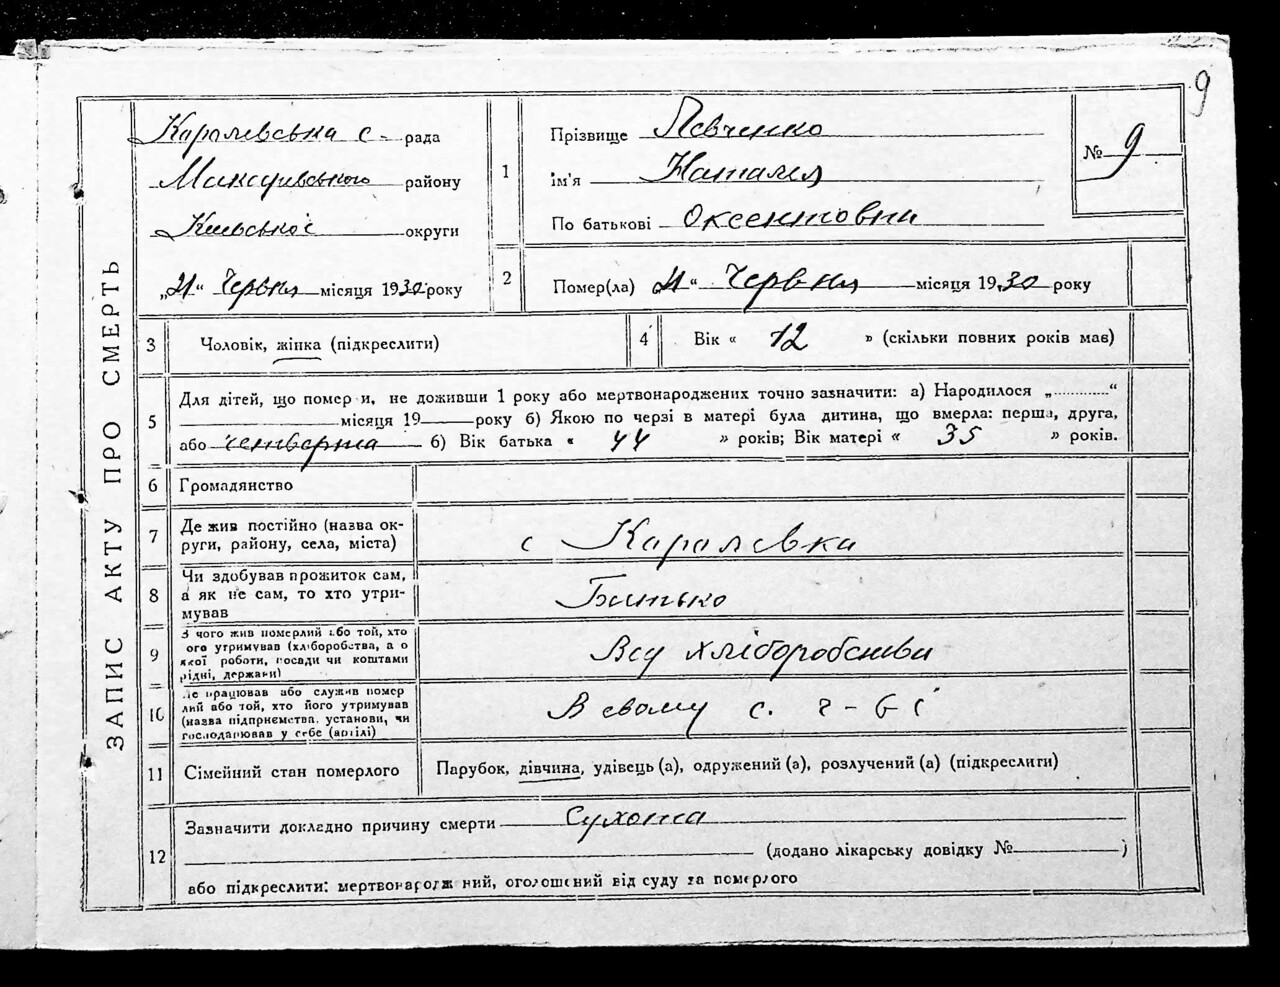 9
ЗАПИС АКТУ ПРО СМЕРТЬ
Каралевська с - рада
Макарівського району
Київської округи
„21“ Червня місяця 1930 року
1
Прізвище Левченко
ім'я Наталия
По батькові Оксентовни
№ 9
2
Помер(ла) 21 “ Червня місяця 1930 року
3 Чоловік, жінка (підкреслити)
4 Вік « 12 » (скільки повних років мав)
5
Для дітей, що померли, не доживши 1 року або мертвонароджених точно зазначити: а) Народилося „ “
місяця 19 року б) Якою по черзі в матері була дитина, що вмерла: перша, друга,
або четверта б) Вік батька « 44 » років; Вік матері « 35 » років.
6 Громадянство
7
Де жив постійно (назва ок-
руги, району, села, міста)
с Каралевка
8
Чи здобував прожиток сам,
а як не сам, то хто утри-
мував
Батько
9
З чого жив померлий або той, хто
ого утримував (хліборобства, а о
якої роботи, посади чи коштами
рідні, держави)
Від хліборобства
10
Де працював або служив помер
лий або той, хто його утримував
(назва підприємства, установи, чи
господарював у себе (артілі)
В свому с. г-ві
11 Сімейний стан померлого
Парубок, дівчина, удівець (а), одружений (а), розлучений (а) (підкреслити)
12
Зазначити докладно причину смерти Сухота
(додано лікарську довідку № )
або підкреслити: мертвонароджений, оголошений від суду за померлого